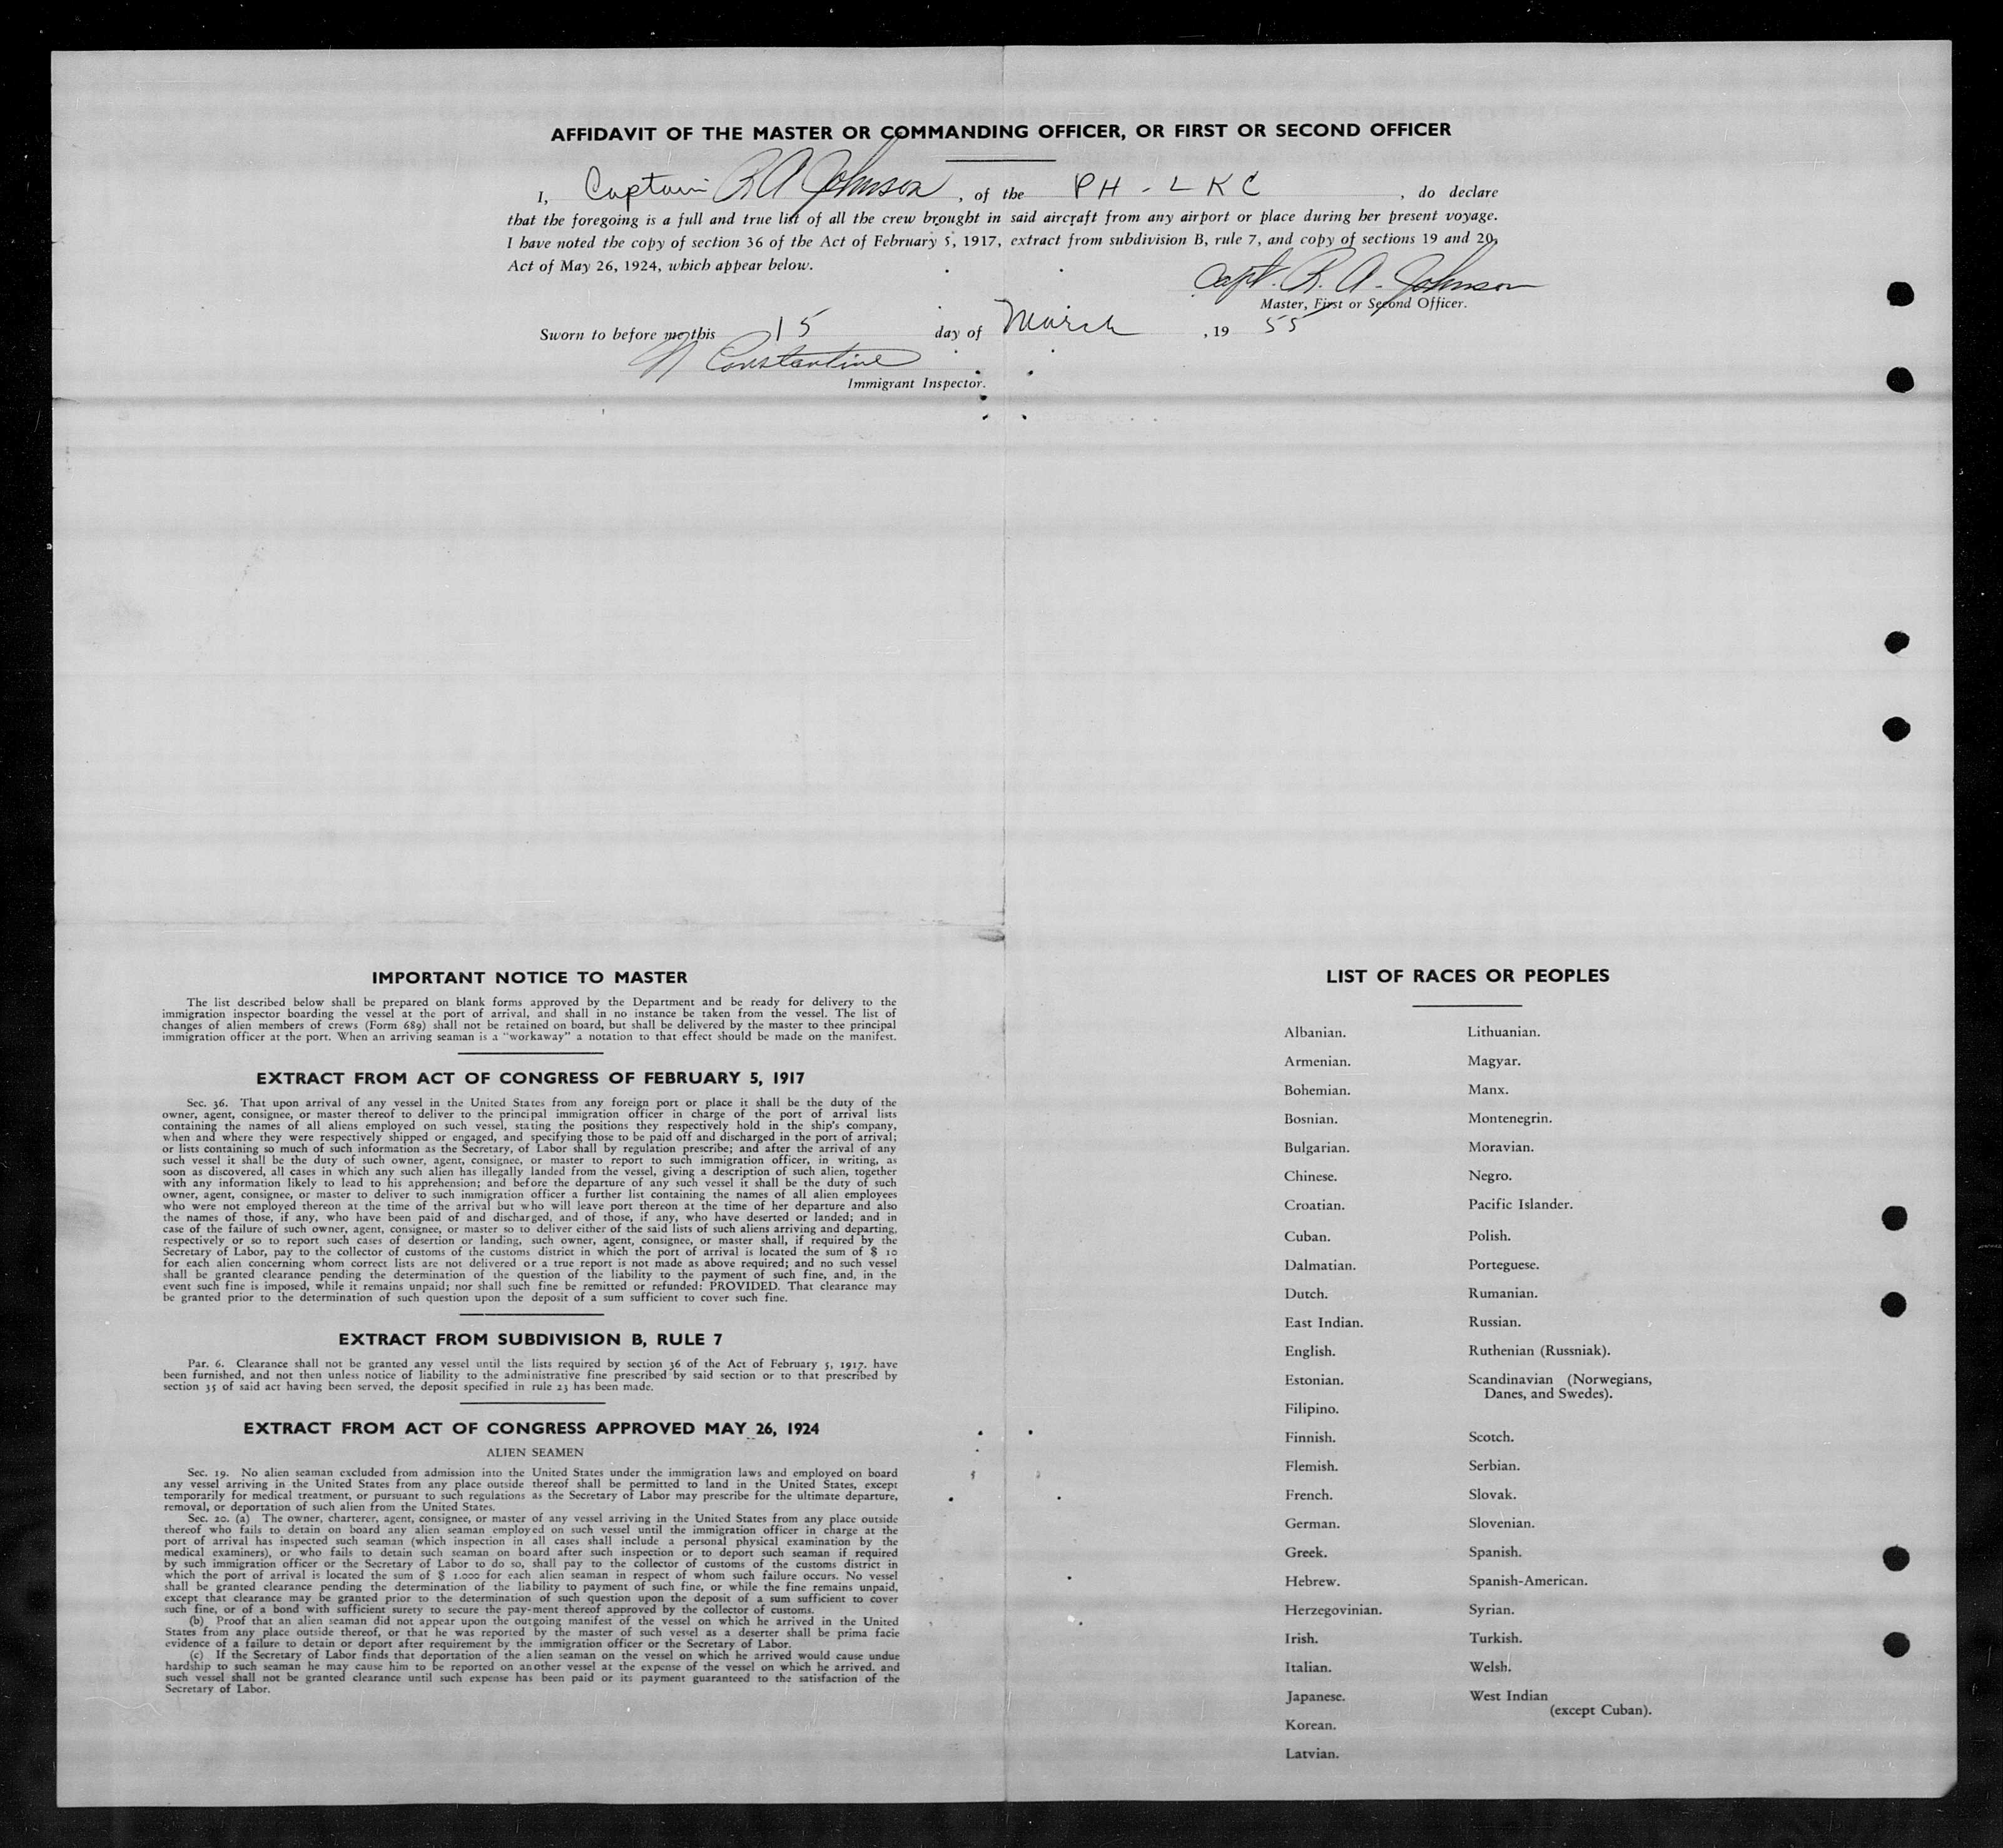 AFFIDAVIT OF THE MASTER OR COMMANDING OFFICER, OR FIRST OR SECOND OFFICER
I, Captain R A Johnson, of the PH - LKC, do declare
that the foregoing is a full and true list of all the crew brought in said aircraft from any airport or place during her present voyage.
I have noted the copy of section 36 of the Act of February 5, 1917, extract from subdivision B, rule 7, and copy of sections 19 and 20,
Act of May 26, 1924, which appear below.
Capt. R. A. Johnson
Master, First or Second Officer.
Sworn to before me this 15 day of March, 19 55
N Constantine
Immigrant Inspector.
IMPORTANT NOTICE TO MASTER
The list described below shall be prepared on blank forms approved by the Department and be ready for delivery to the
immigration inspector boarding the vessel at the port of arrival, and shall in no instance be taken from the vessel. The list of
changes of alien members of crews (Form 689) shall not be retained on board, but shall be delivered by the master to thee principal
immigration officer at the port. When an arriving seaman is a "workaway" a notation to that effect should be made on the manifest.
EXTRACT FROM ACT OF CONGRESS OF FEBRUARY 5, 1917
Sec. 36. That upon arrival of any vessel in the United States from any foreign port or place it shall be the duty of the
owner, agent, consignee, or master thereof to deliver to the principal immigration officer in charge of the port of arrival lists
containing the names of all aliens employed on such vessel, stating the positions they respectively hold in the ship's company,
when and where they were respectively shipped or engaged, and specifying those to be paid off and discharged in the port of arrival;
or lists containing so much of such information as the Secretary, of Labor shall by regulation prescribe; and after the arrival of any
such vessel it shall be the duty of such owner, agent, consignee, or master to report to such immigration officer, in writing, as
soon as discovered, all cases in which any such alien has illegally landed from the vessel, giving a description of such alien, together
with any information likely to lead to his apprehension; and before the departure of any such vessel it shall be the duty of such
owner, agent, consignee, or master to deliver to such immigration officer a further list containing the names of all alien employees
who were not employed thereon at the time of the arrival but who will leave port thereon at the time of her departure and also
the names of those, if any, who have been paid of and discharged, and of those, if any, who have deserted or landed; and in
case of the failure of such owner, agent, consignee, or master so to deliver either of the said lists of such aliens arriving and departing,
respectively or so to report such cases of desertion or landing, such owner, agent, consignee, or master shall, if required by the
Secretary of Labor, pay to the collector of customs of the customs district in which the port of arrival is located the sum of $ 10
for each alien concerning whom correct lists are not delivered or a true report is not made as above required; and no such vessel
shall be granted clearance pending the determination of the question of the liability to the payment of such fine, and, in the
event such fine is imposed, while it remains unpaid; nor shall such fine be remitted or refunded: PROVIDED. That clearance may
be granted prior to the determination of such question upon the deposit of a sum sufficient to cover such fine.
EXTRACT FROM SUBDIVISION B, RULE 7
Par. 6. Clearance shall not be granted any vessel until the lists required by section 36 of the Act of February 5, 1917. have
been furnished, and not then unless notice of liability to the administrative fine prescribed by said section or to that prescribed by
section 35 of said act having been served, the deposit specified in rule 23 has been made.
EXTRACT FROM ACT OF CONGRESS APPROVED MAY 26, 1924
ALIEN SEAMEN
Sec. 19. No alien seaman excluded from admission into the United States under the immigration laws and employed on board
any vessel arriving in the United States from any place outside thereof shall be permitted to land in the United States, except
temporarily for medical treatment, or pursuant to such regulations as the Secretary of Labor may prescribe for the ultimate departure,
removal, or deportation of such alien from the United States.
Sec. 20. (a) The owner, charterer, agent, consignee, or master of any vessel arriving in the United States from any place outside
thereof who fails to detain on board any alien seaman employed on such vessel until the immigration officer in charge at the
port of arrival has inspected such seaman (which inspection in all cases shall include a personal physical examination by the
medical examiners), or who fails to detain such seaman on board after such inspection or to deport such seaman if required
by such immigration officer or the Secretary of Labor to do so, shall pay to the collector of customs of the customs district in
which the port of arrival is located the sum of $ 1.000 for each alien seaman in respect of whom such failure occurs. No vessel
shall be granted clearance pending the determination of the liability to payment of such fine, or while the fine remains unpaid,
except that clearance may be granted prior to the determination of such question upon the deposit of a sum sufficient to cover
such fine, or of a bond with sufficient surety to secure the pay-ment thereof approved by the collector of customs.
(b) Proof that an alien seaman did not appear upon the outgoing manifest of the vessel on which he arrived in the United
States from any place outside thereof, or that he was reported by the master of such vessel as a deserter shall be prima facie
evidence of a failure to detain or deport after requirement by the immigration officer or the Secretary of Labor.
(c) If the Secretary of Labor finds that deportation of the alien seaman on the vessel on which he arrived would cause undue
hardship to such seaman he may cause him to be reported on another vessel at the expense of the vessel on which he arrived. and
such vessel shall not be granted clearance until such expense has been paid or its payment guaranteed to the satisfaction of the
Secretary of Labor.
LIST OF RACES OR PEOPLES
Albanian.
Armenian.
Bohemian.
Bosnian.
Bulgarian.
Chinese.
Croatian.
Cuban.
Dalmatian.
Dutch.
East Indian.
English.
Estonian.
Filipino.
Finnish.
Flemish.
French.
German.
Greek.
Hebrew.
Herzegovinian.
Irish.
Italian.
Japanese.
Korean.
Latvian.
Lithuanian.
Magyar.
Manx.
Montenegrin.
Moravian.
Negro.
Pacific Islander.
Polish.
Porteguese.
Rumanian.
Russian.
Ruthenian (Russniak).
Scandinavian (Norwegians,
Danes, and Swedes).
Scotch.
Serbian.
Slovak.
Slovenian.
Spanish.
Spanish-American.
Syrian.
Turkish.
Welsh.
West Indian
(except Cuban).